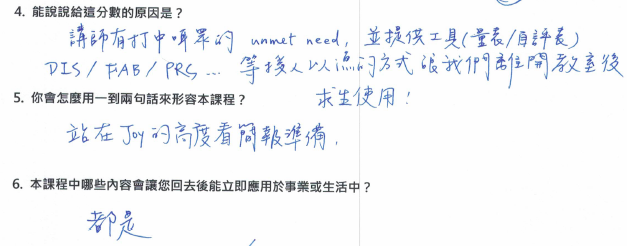 4. 能說說給這分數的原因是？
講師有打中聽眾的 unmet need, 並提供工具(量表/自評表)
DIS / FAB / PRS ... 等授人以漁的方式 讓我們離開教室後
求生使用！
5. 你會怎麼用一到兩句話來形容本課程？
站在 Joy 的高度看簡報準備,
6. 本課程中哪些內容會讓您回去後能立即應用於事業或生活中？
都是